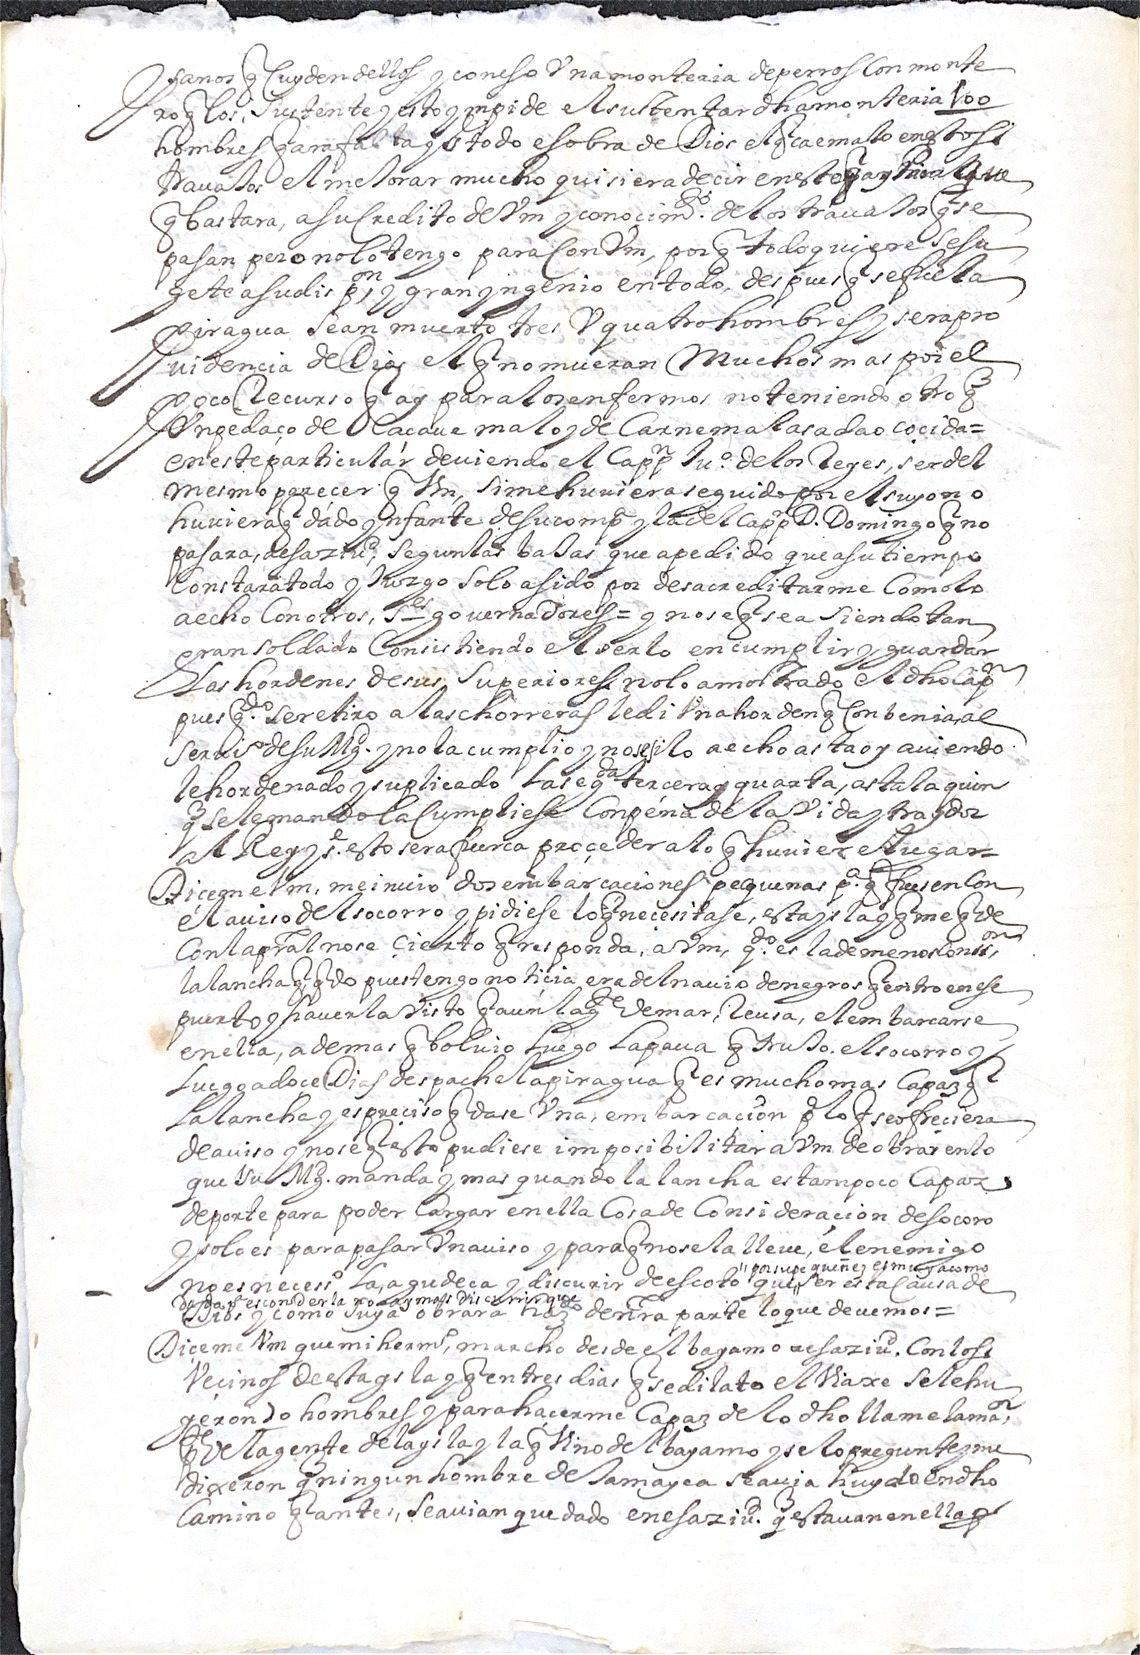 sanos q̃ cuyden dellos y con eso Vna monteria de perros Con monte
ro q̃ los, Sustente y esto ympide el sustentar dha monteria 100
hombres q̃ aran falta y es todo es obra de Dios el q̃ cae malo en estos
travajos el mejorar mucho quisiera decir en este
q̃ bastara, a su Credito de Vm y conocimto. de los travajos q̃ se
pasan pero no lo tengo para Con Vm, porq̃ todo quiere se su
gete a su disppon y gran yngenio en todo, despues q̃ se fue la
piragua Sean muerto tres, V quatro hombres y sera pro
uidencia de Dios el q̃ no mueran Muchos mas por el
poco Recurso q̃ ay para los enfermos no teniendo otro q̃
Vn pedaço de Caçaue malo y de Carne mala sada o cocida=
en este particular deuiendo el Cappn Juo. de los Reyes, ser del
mesmo parecer q̃ Vm, si me huviera seguido por el suyo no
huuiera q̃dado ynfante de su comp y la del Cappn D. Domingo q̃ no
pasara, de sa ziud, segun las vajas que a pedido que a su tiempo
Constara todo y Juzgo solo a sido por desacreditarme Como lo
a echo Con otros, Ses gouernadores= y no se q̃ sea siendo tan
gran soldado Consistiendo el serlo en cumplir y guardar
Las hordenes de sus, Superiores no lo a mostrado el dho Cappn
pues qdo. se retiro a las chorreras le di Vna horden q̃ Conbenia, al
seruiso de su Mgd. y no la cumplio y no solo a echo asta oy auiendo
le hordenado y suplicado La segda tercera y quarta, asta la quin
q̃ se le mando la Cumpliese Con pena de la Vida y traydor
al Rey y se. esto sera fuerca proceder a lo q̃ huuiere lugar=
Diceme Vm, me inuio dos embarcaciones pequenas pa. q̃ fuesen Con
el auiso del socorro y pidiese lo q̃ necesitase, esta ys la y q̃ me q̃de
Con la pral no se Çierto q̃ responda, a Vm, qdo. es la de menos Conson,
la lancha q̃ q̃do pues tengo noticia era del nauio de negros q̃ entro en ese
puerto y hauerla Visto q̃ aun la gte de mar, Reusa, el embarcarse
en ella, a demas q̃ boluio Luego La paua q̃ trujo. el socorro y
Luego a doce Dias despache la piragua q̃ es mucho mas Capaz q̃
La lancha y es preciso q̃dase Vna, embarcacion pa lo q̃ se ofreciera
de auiso y no se q̃ esto pudiese imposibilitar a Vm de obrar en lo
que Su Mgd. manda y mas quando la lancha es tampoco Capaz
de porte para poder Cargar en ella Cosa de Consideracion de socoro
y solo es para pasar Vn auiso y para q̃ no se la lleue, el enemigo
" por su pequeñez es muy acomo
no es neceso La, agudeca y discurir de escoto que " ser esta Causa de
dada pa esconderla no ay mas discurrir que
Dios y como suya obrara haz de nra parte lo que deuemos=
Diceme Vm que mi hermo, marcho desde el bayamo a esa ziud. Con los
Vecinos de esta ys la y q̃ en tres dias q̃ se dilato el Viaxe se le hu
yeron 30 hombres y para hacerme Capaz de lo dho llame la maor,
pte de la gente de la ysla y la q̃ Vino del bayamo y se lo pregunte y me
dixeron q̃ ningun hombre de Jamayca se auia huydo en dho
Camino q̃ antes, se auian quedado en esa ziud. q̃ estauan en ella